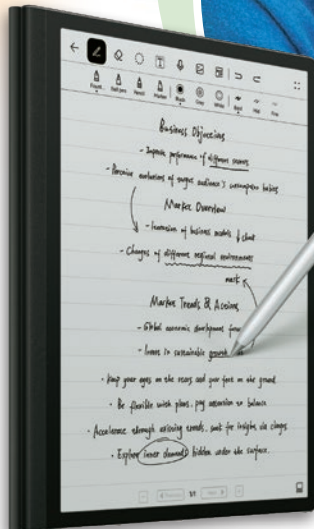 Fount... Ball pen Pencil Marker Black Grey White Bold Med Fine
Business Objectives
- Improve performance of different sectors
- Perceive evolutions of target audience's consumption habits
Market Overview
- Immersion of business models & chart
- Changes of different regional environments
mark
Market Trends & Actions
- Global economic development
- Invest in sustainable growth
· Keep your eyes on the stars and your feet on the ground
· Be flexible with plans, pay attention to balance
· Accelerate through existing trends, seek for insights via changes
· Explore inner demands hidden under the surface.
1/1